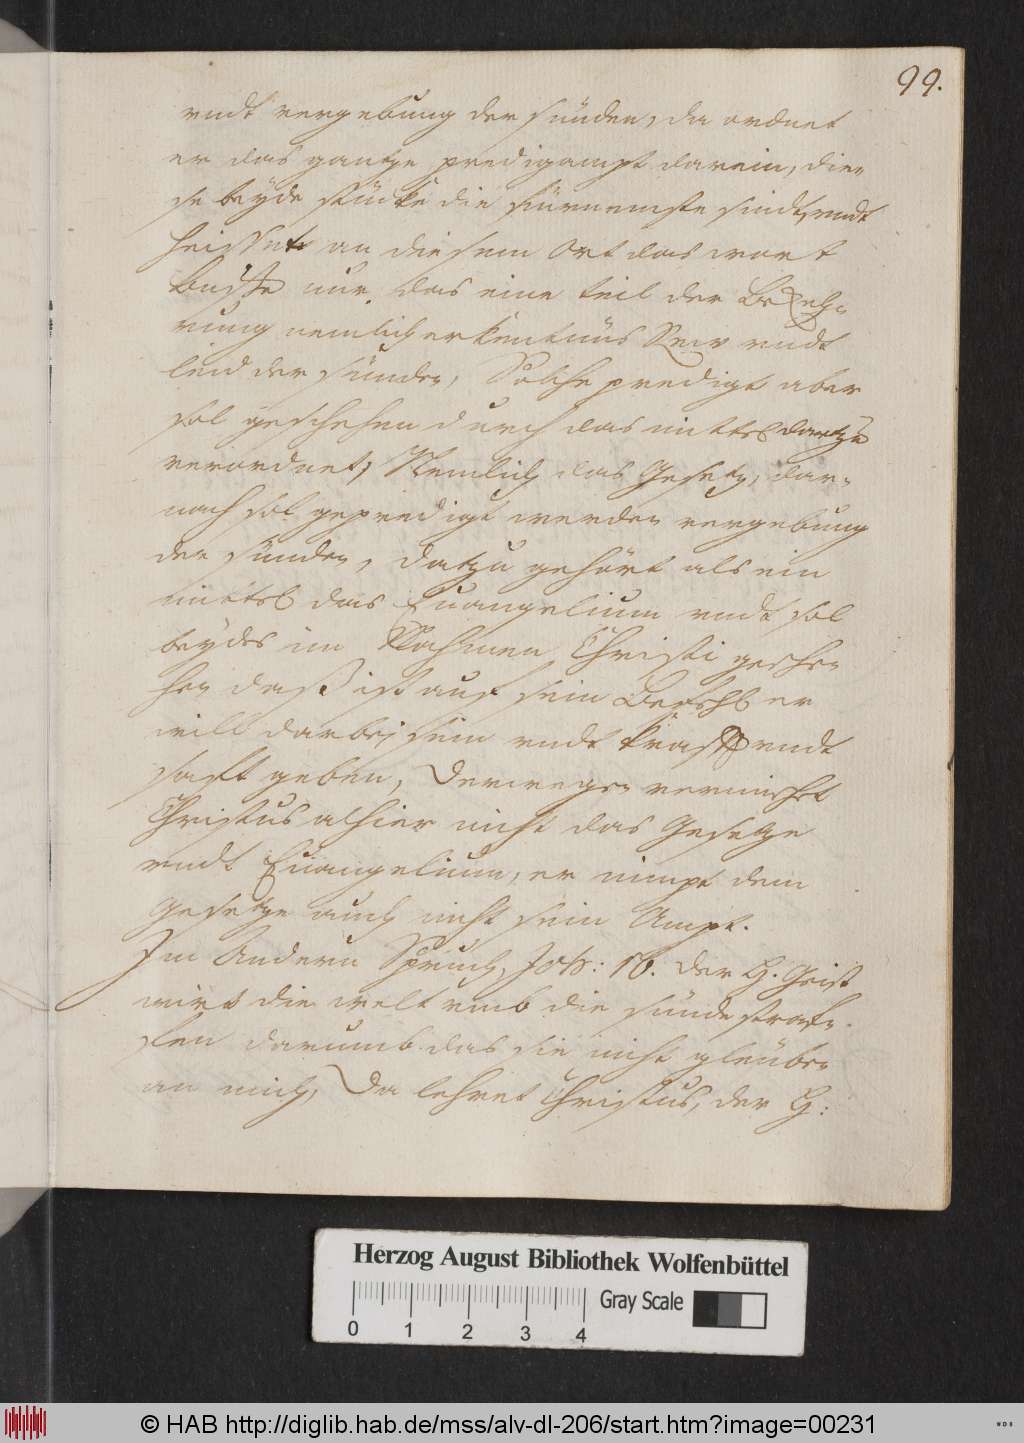 99.
vndt vergebung der sünden, da ordnet
er das gantze predigampt darein, die-
se beyde stücke die fürnemste sindt, vndt
heisset an diesem Ort das wort
Busse nur das eine teil der Bekeh-
rung nemlich erkentnüs Rew vndt
leid der sünden, Solche predigt aber
sol geschehen durch das mittel dartzu
verordnet, Nemlich das Gesetz, dar-
nach sol gepredigt werden vergebung
der sünden, datzu gehört als ein
mittel das Euangelium vndt sol
beydes im Nahmen Christi gesche-
hen daß ist auf sein Bevehl er
will darbej sein vndt krafft vndt
safft geben, Derwegen vermischet
Christus alhier nicht das Gesetze
vndt Euangelium, er nimpt dem
Gesetze auch nicht sein Ampt.
Im Andern Spruch, Joh: 16. Der H. Geist
wirt die welt vmb die sünde straf-
fen darumb das sie nicht gleuben
an mich, Da lehret Christus, der H:
Herzog August Bibliothek Wolfenbüttel
Gray Scale
0 1 2 3 4
© HAB http://diglib.hab.de/mss/alv-dl-206/start.htm?image=00231